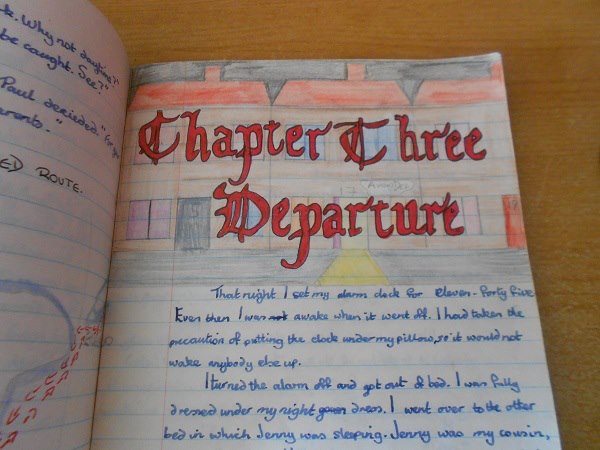 k. Why not daytime?"
be caught. See?"
Paul decided. "For
arents."
ED ROUTE.
Chapter Three
Departure
That night I set my alarm clock for eleven-forty five
Even then I was not awake when it went off. I had taken the
precaution of putting the clock under my pillow, so it would not
wake anybody else up.
I turned the alarm off and got out of bed. I was fully
dressed under my night gown dress. I went over to the other
bed in which Jenny was sleeping. Jenny was my cousin,